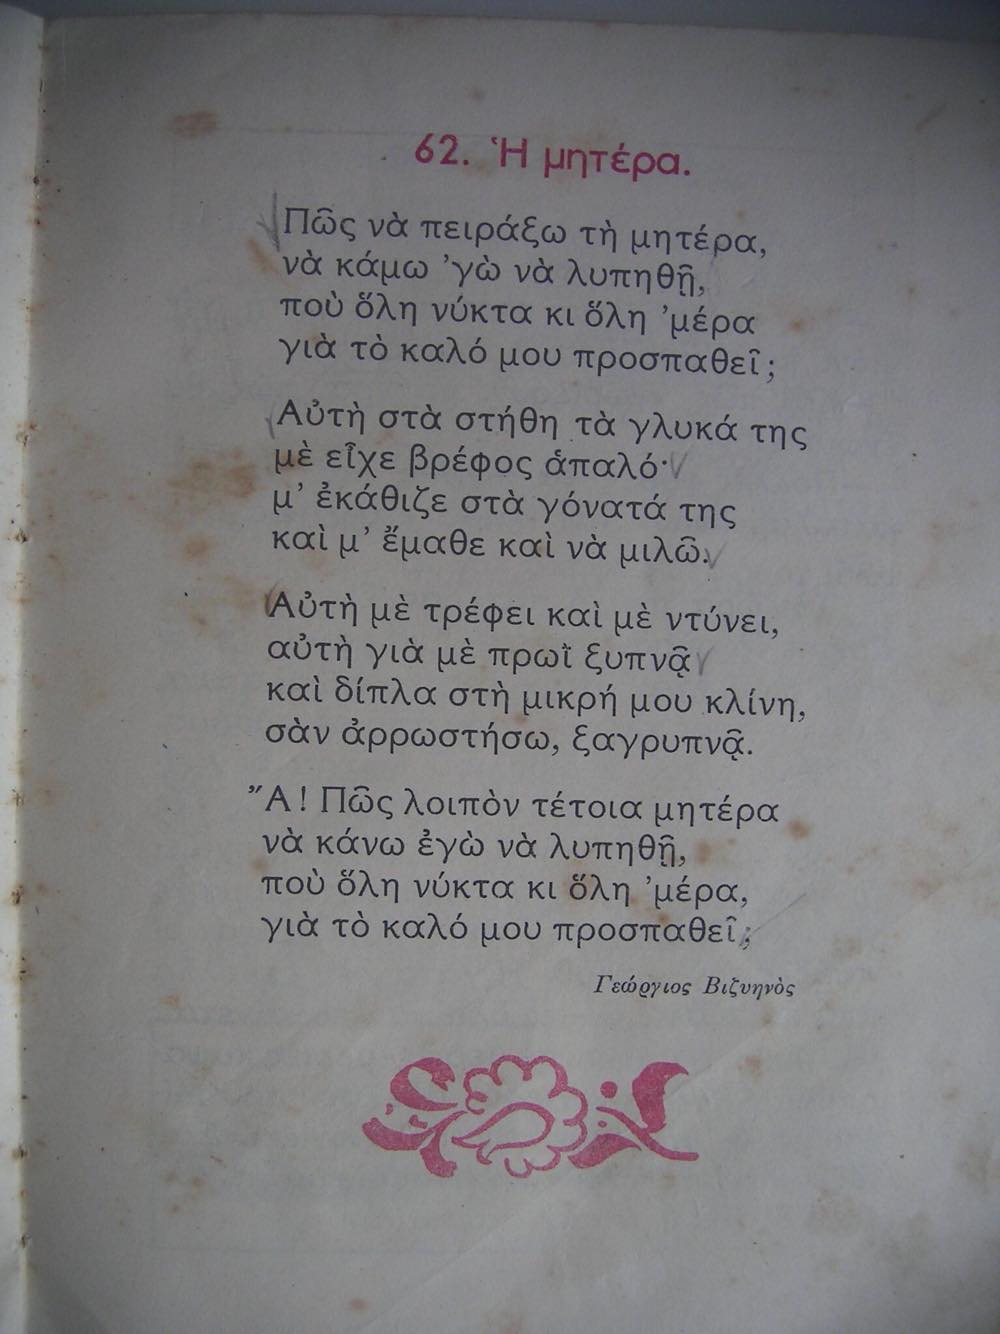 62. Ἡ μητέρα.
Πῶς νὰ πειράξω τὴ μητέρα,
νὰ κάμω ’γὼ νὰ λυπηθῇ,
ποὺ ὅλη νύκτα κι ὅλη ’μέρα
γιὰ τὸ καλό μου προσπαθεῖ;
Αὐτὴ στὰ στήθη τὰ γλυκά της
μὲ εἶχε βρέφος ἁπαλό·
μ’ ἐκάθιζε στὰ γόνατά της
καὶ μ’ ἔμαθε καὶ νὰ μιλῶ.
Αὐτὴ μὲ τρέφει καὶ μὲ ντύνει,
αὐτὴ γιὰ μὲ πρωῒ ξυπνᾷ
καὶ δίπλα στὴ μικρή μου κλίνη,
σὰν ἀρρωστήσω, ξαγρυπνᾷ.
Ἄ! Πῶς λοιπὸν τέτοια μητέρα
νὰ κάνω ἐγὼ νὰ λυπηθῇ,
ποὺ ὅλη νύκτα κι ὅλη ’μέρα,
γιὰ τὸ καλό μου προσπαθεῖ;
Γεώργιος Βιζυηνὸς